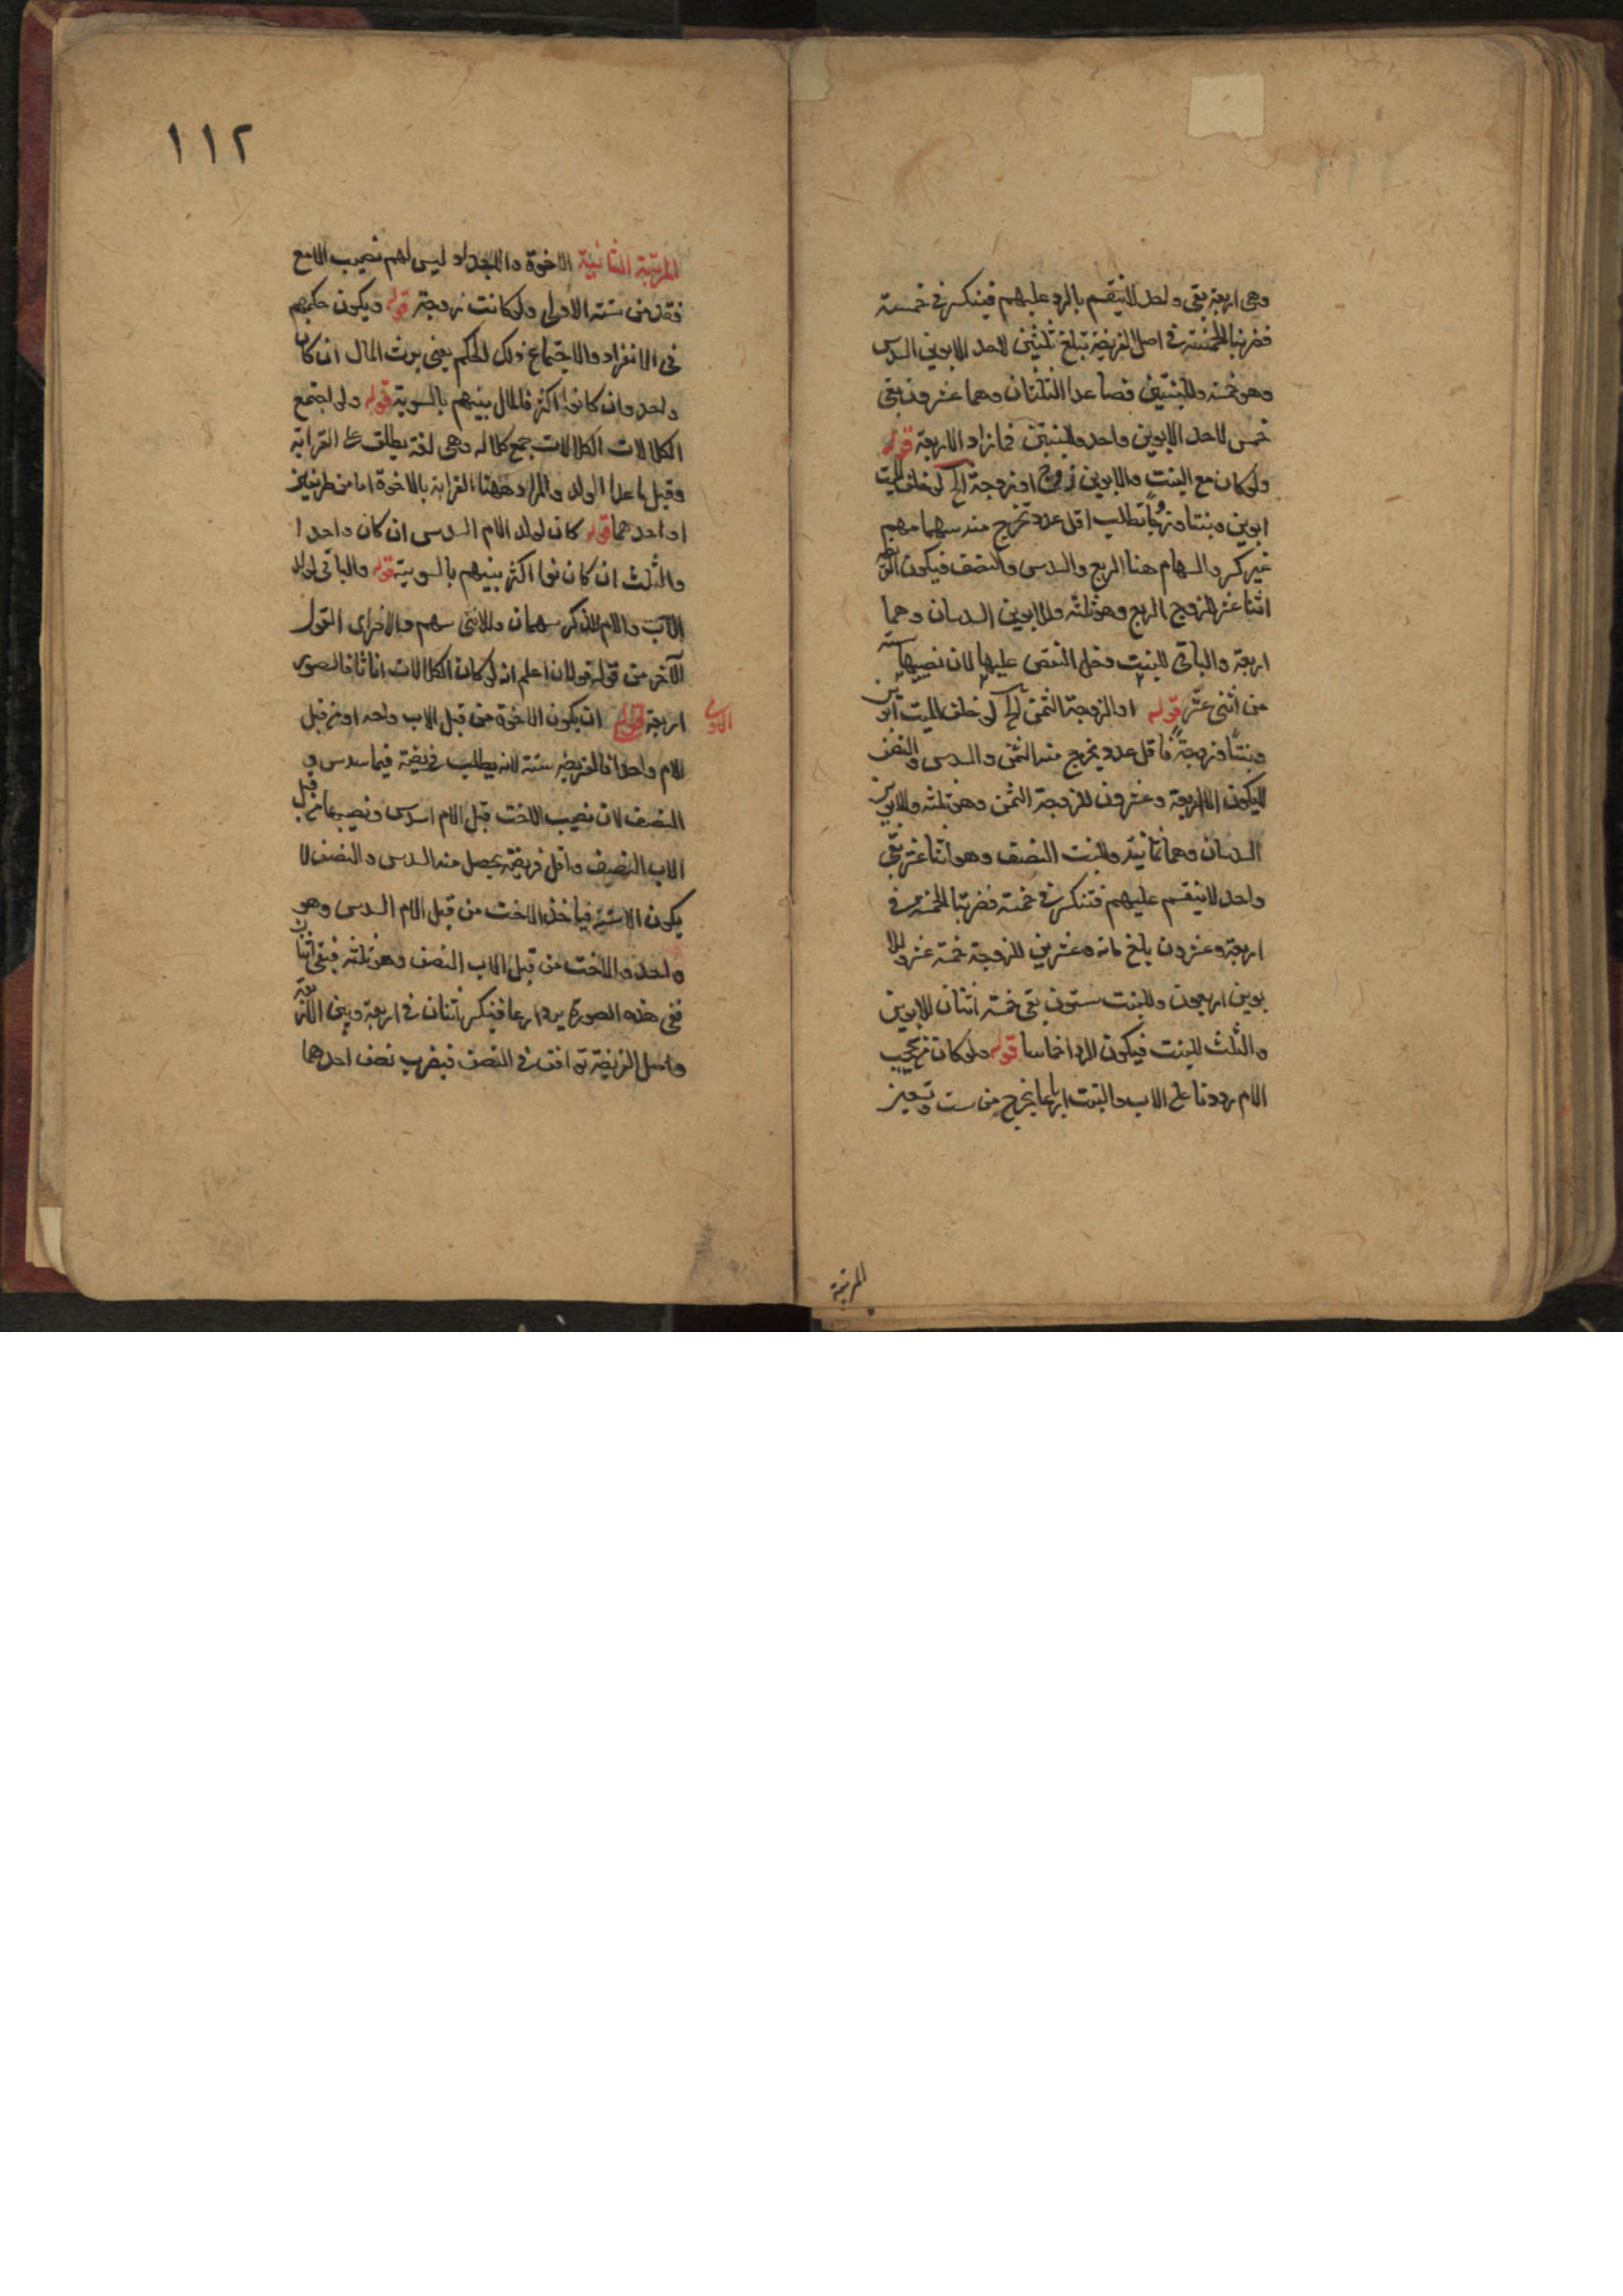 وهي اربعة بقي واحد لا ينقسم بالرد عليهم فينكسر في خمسة
فضربنا الخمسة في اصل الفريضة تبلغ ثلثين لاحد الابوين السدس
وهو خمسة وللبنتين فصاعدا الثلثان وهما عشرون بقي
خمس لاحد الابوين واحد وللبنتين فما زاد الاربعة قوله
ولو كان مع البنت والابوين زوج او زوجة الخ لو خلف الميت
ابوين وبنتا وزوجا تطلب اقل عدد تخرج منه سهامهم
غير كسر والسهام هنا الربع والسدس والنصف فيكون
اثنا عشر للزوج الربع وهو ثلثه وللابوين السدسان وهما
اربعة والباقي للبنت فدخل النقص عليها لان نصيبها ستة
من اثني عشر قوله او الزوجة الثمن الخ لو خلف الميت ابوين
وبنتا وزوجة فاقل عدد يخرج منه الثمن والسدس والنصف
لا يكون الا اربعة وعشرون للزوجة الثمن وهو ثلثه وللابوين
السدسان وهما ثمانية وللبنت النصف وهو اثنا عشر بقي
واحد لا ينقسم عليهم فتنكسر في خمسة فضربنا الخمسة في
اربعة وعشرون بلغ مائه وعشرين للزوجة خمسة عشر وللا
بوين اربعون وللبنت ستون بقي خمسة اثنان للابوين
والثلث للبنت فيكون الرد اخماسا قوله ولو كان من يحجب
الام رددنا على الاب والبنت ارباعا يخرج من ست وتسعين
المرتبة
١١٢
المرتبة الثانية الاخوة والاجداد ليس لهم نصيب الا مع
فقد من سنته الاولى ولو كانت زوجة قوله ويكون حكمهم
في الانفراد والاجتماع ذلك الحكم يعني يرث المال ان كان
واحد وان كانوا اكثر فالمال بينهم بالسوية قوله ولو اجتمع
الكلالات الكلالات جمع كلاله وهي لغة يطلق على القرابة
وقيل ما عدا الولد والمراد ههنا القرابة بالاخوة اما من طرفين
او احدهما قوله كان لولد الام السدس ان كان واحدا
والثلث ان كانوا اكثر بينهم بالسوية قوله والباقي لولد
الاب والام للذكر سهمان وللانثى سهم
الآخر من قوله قولان اعلم انه لو كان الكلالات اناثا فالصور
اربعة الاولى ان يكون الاخوة من قبل الاب واحد او من قبل
الام واحدا فالفريضة ستة لانه يطلب فريضة فيها سدس و
النصف لان نصيب الاخت قبل الام السدس ونصيبها من قبل
الاب النصف واقل فريضة يحصل منه السدس والنصف لا
يكون الا ستة فياخذ الاخت من قبل الام السدس وهو
واحد والاخت من قبل الاب النصف وهو ثلثه فبقي اثنان
ففي هذه الصورة يرد ارباعا فينكسر اثنان في اربعة وبين الاربعة
واصل الفريضة توافق في النصف فيضرب نصف احدهما